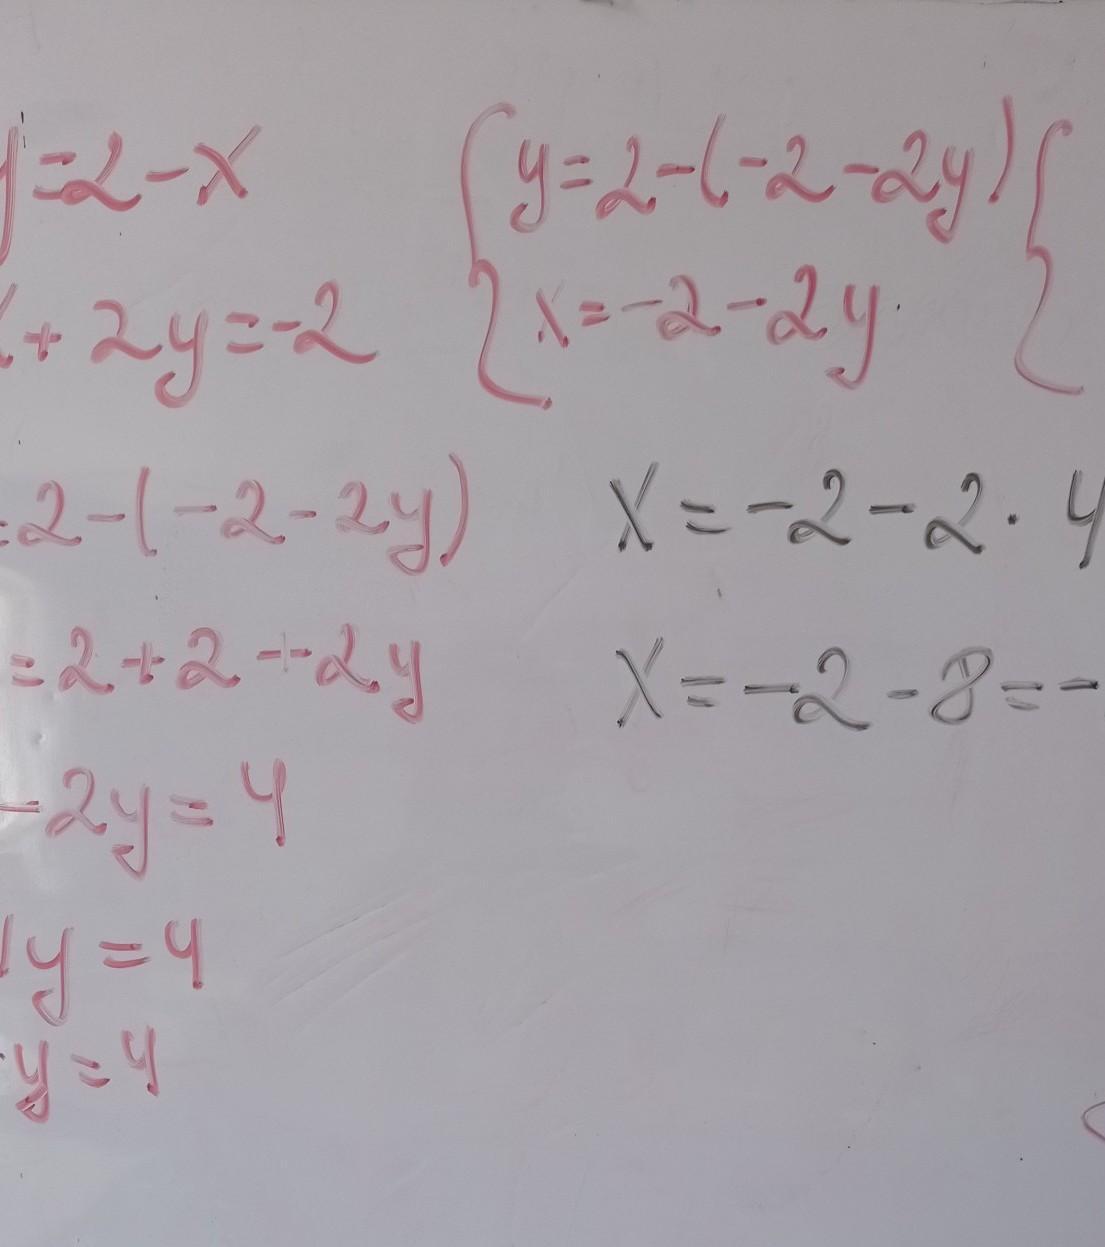 y=2-x
x+2y=-2
{ y=2-(-2-2y) {
x=-2-2y
=2-(-2-2y)
=2+2+2y
-2y=4
1y=4
y=4
x=-2-2·4
x=-2-8=-